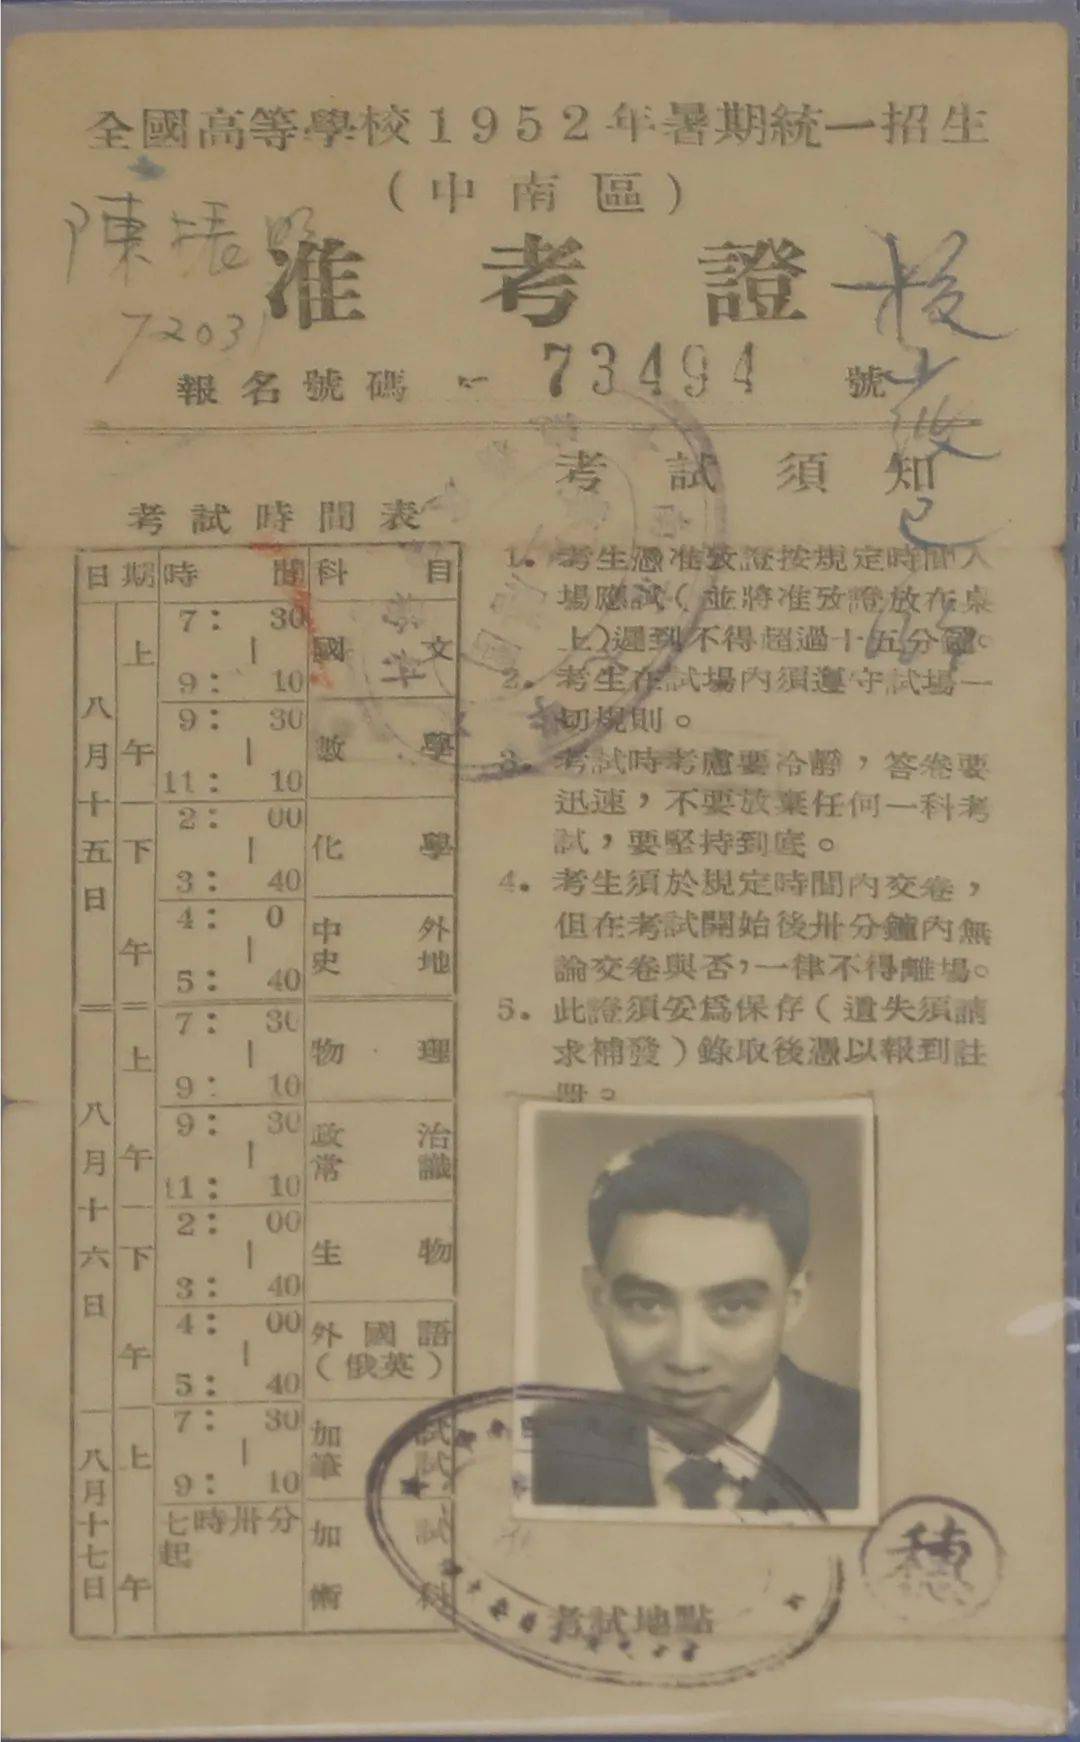 全國高等學校1952年暑期統一招生
(中南區)
陳振
准考證
7203
報名號碼 73494 號
考試須知
1. 考生憑准攷證按規定時間入
場應試(並將准攷證放在桌
上)遲到不得超過十五分鐘。
2. 考生在試場內須遵守試場一
切規則。
3. 考試時考慮要冷靜，答卷要
迅速，不要放棄任何一科考
試，要堅持到底。
4. 考生須於規定時間內交卷，
但在考試開始後卅分鐘內無
論交卷與否，一律不得離場。
5. 此證須妥爲保存(遺失須請
求補發)錄取後憑以報到註
冊。
考試時間表
日期 時間 科目
八月十五日 上午 7:30—9:10 國文
9:30—11:10 數學
下午 2:00—3:40 化學
4:0—5:40 中外史地
八月十六日 上午 7:30—9:10 物理
9:30—11:10 政治常識
下午 2:00—3:40 生物
4:00—5:40 外國語(俄英)
八月十七日 上午 7:30—9:10 加試筆試
七時卅分起 加試術科
穗
考試地點